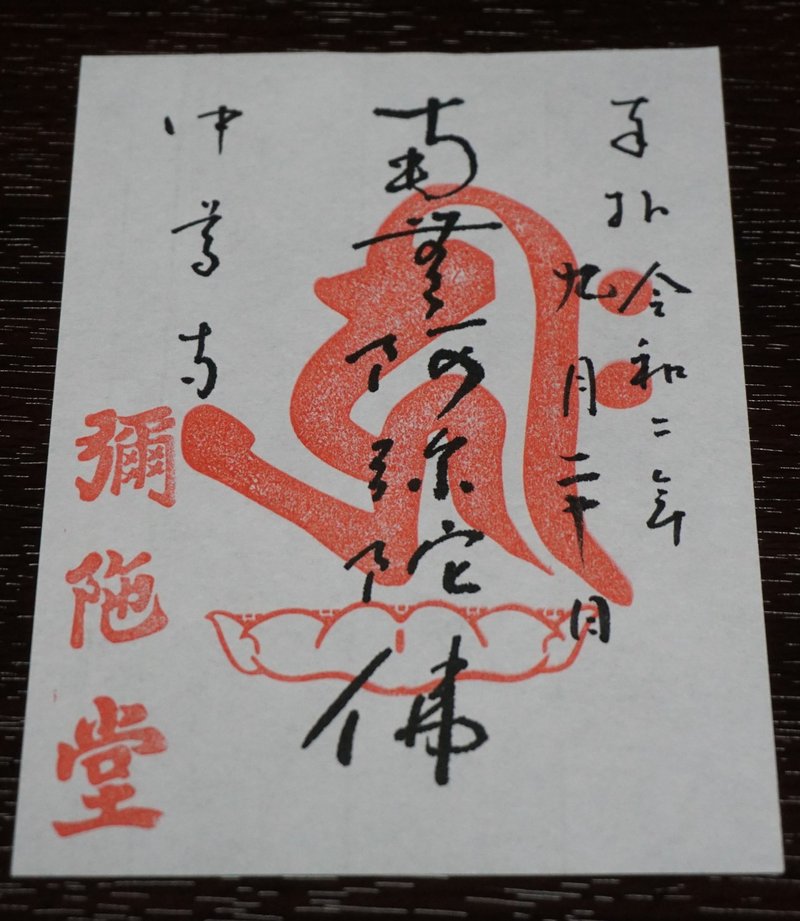 奉拝 令和二年
九月二十日
南無阿弥陀佛
仲尊寺
彌陁堂